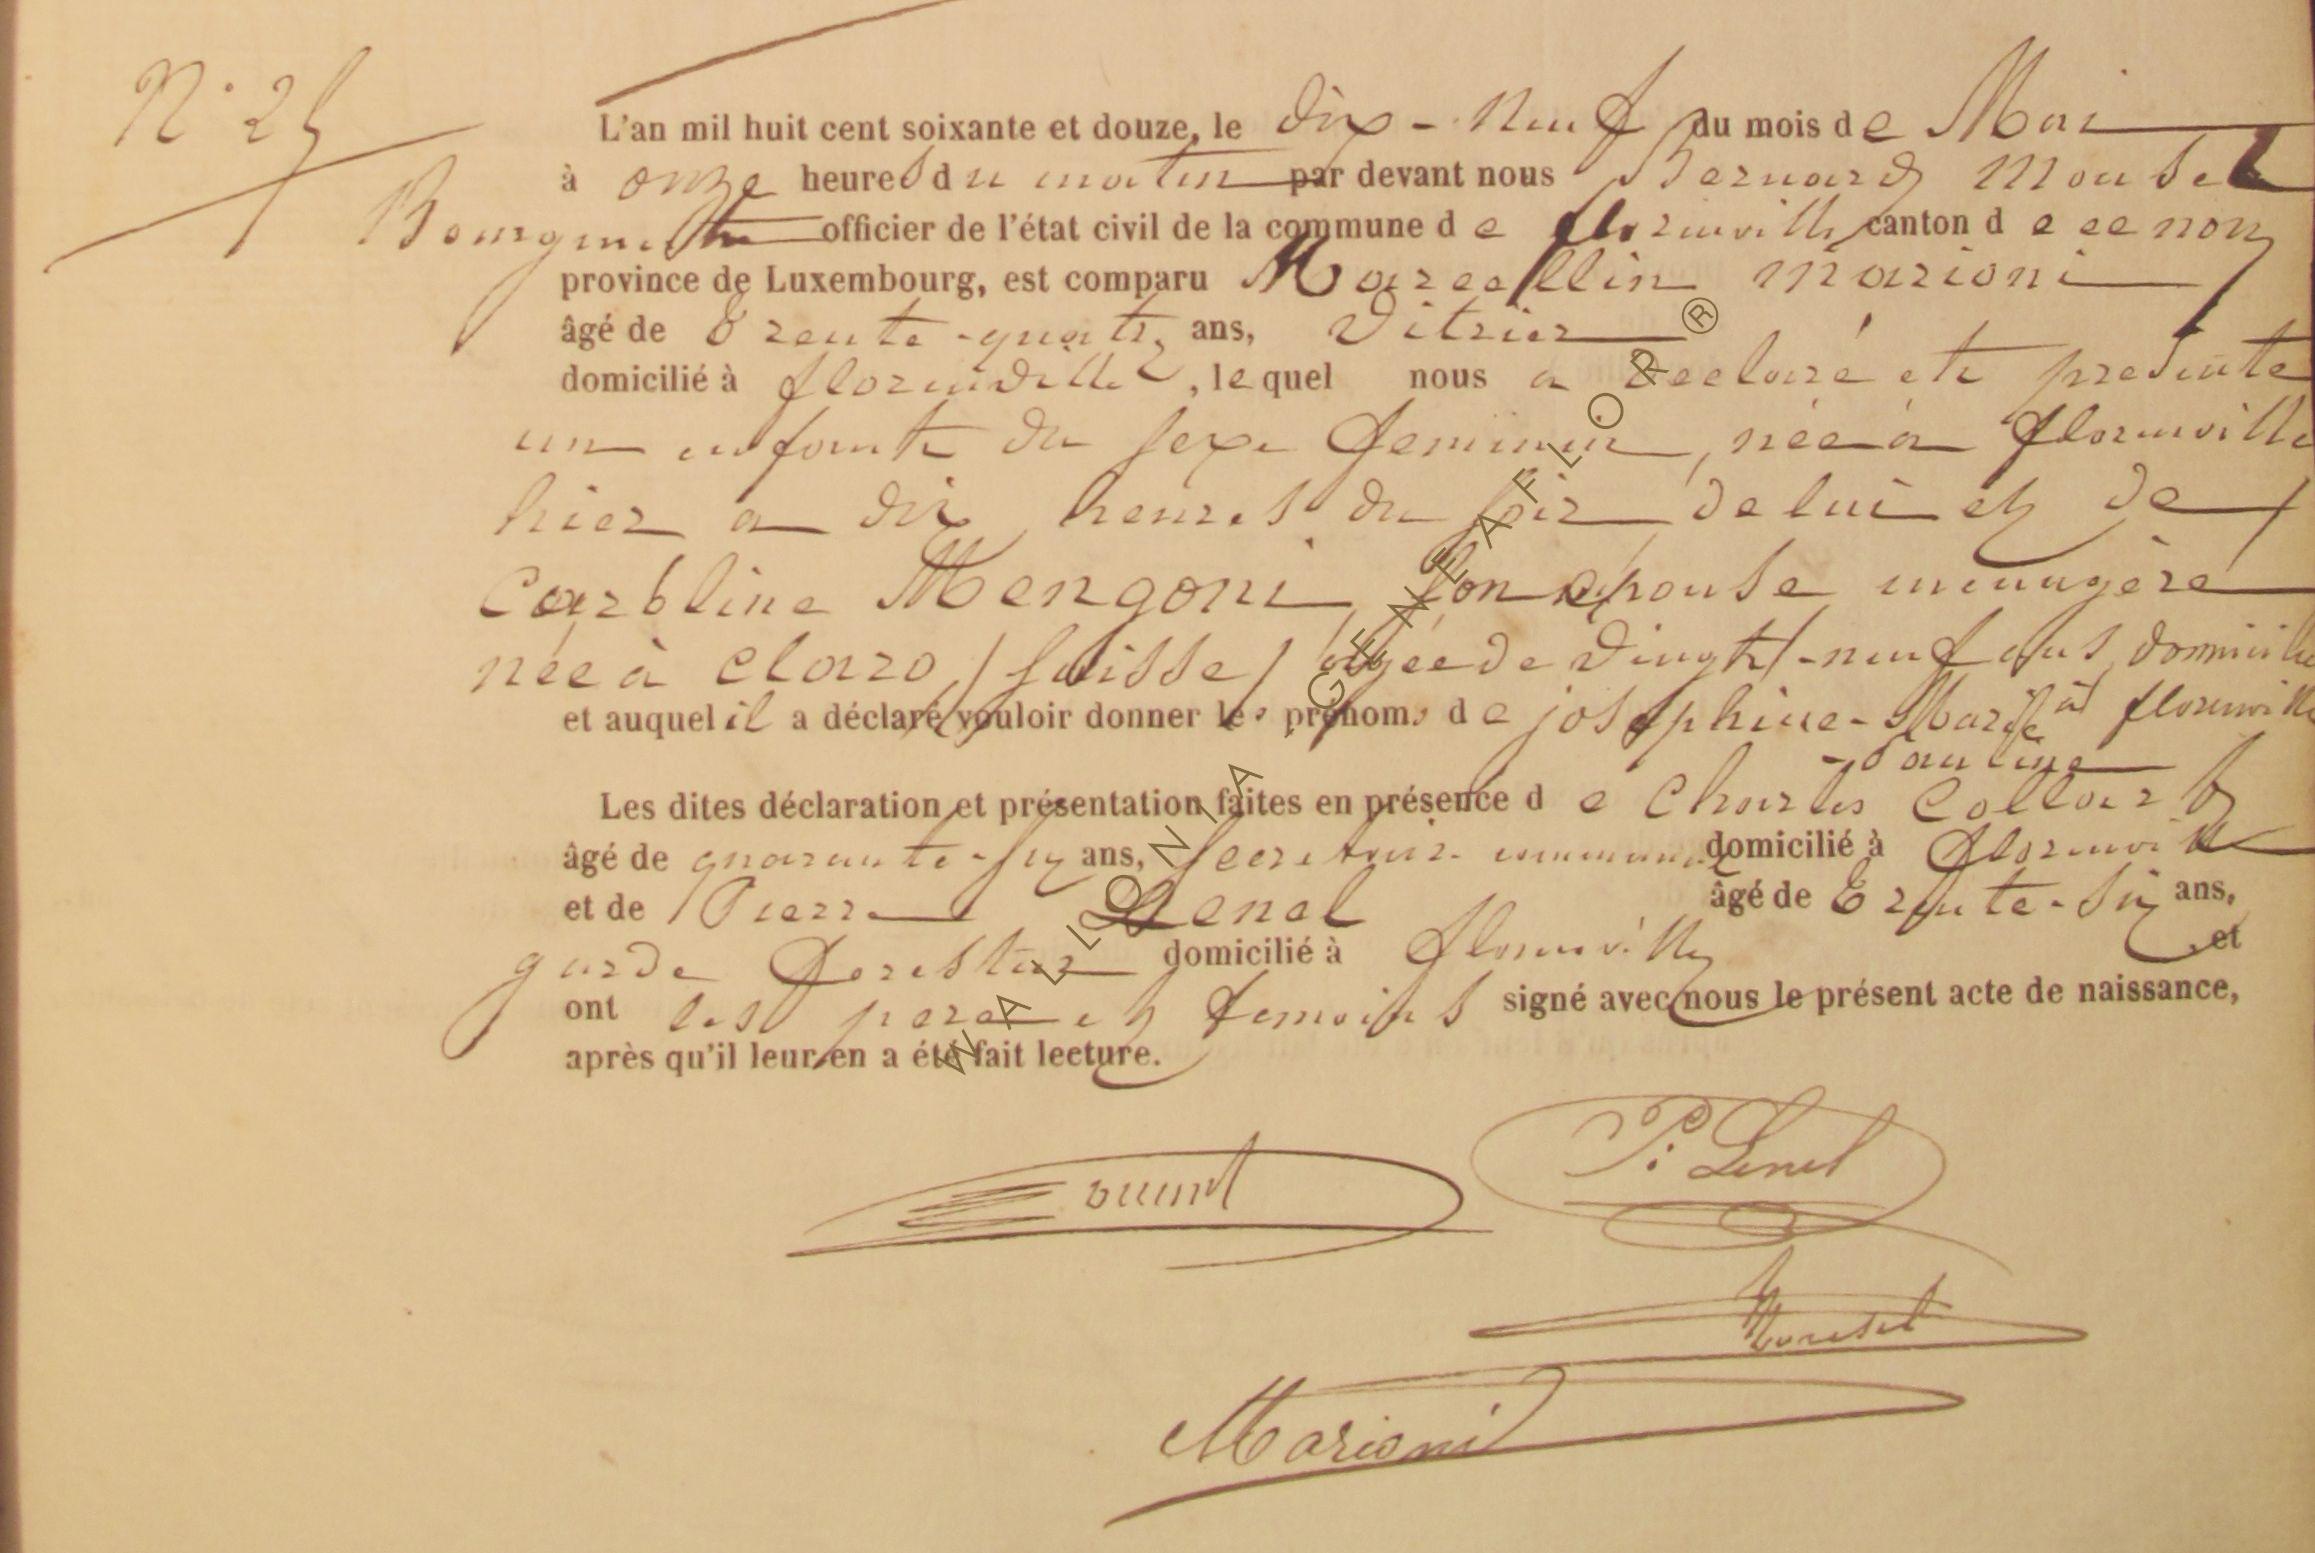 N° 25
L'an mil huit cent soixante et douze, le dix-neuf du mois de Mai
à onze heures du matin par devant nous Bernard Mousel
Bourgmestre officier de l'état civil de la commune de florenville canton de ce nom
province de Luxembourg, est comparu Marcellin Marioni
âgé de trente-quatre ans, vitrier
domicilié à florenville, lequel nous a déclaré et présenté
un enfant du sexe feminin, née à florenville
hier a dix heures du soir de lui et de
Caroline Mengoni, son épouse ménagère
née à Claro (suisse) agée de vingt-neuf ans, domicilié
à florenville
et auquel il a déclaré vouloir donner les prénoms de joséphine-Marie
-Pauline
Les dites déclaration et présentation faites en présence de Charles Collart
âgé de quarante-six ans, secretaire communal domicilié à florenville
et de Pierre Lenel âgé de trente-six ans,
garde forestier domicilié à florenville et
ont les pere et temoins signé avec nous le présent acte de naissance,
après qu'il leur en a été fait lecture.
P. Lenel
Mousel
Marioni
WALLONIA.GENEAFLOR®